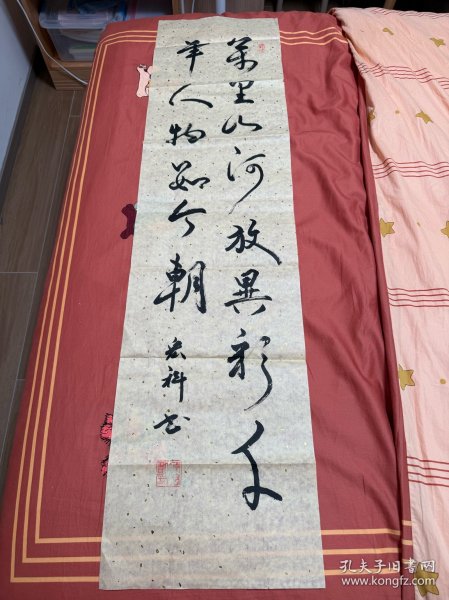 萬里山河放異彩千
年人物数今朝
宏科书
孔夫子旧书网
www.kongfz.com